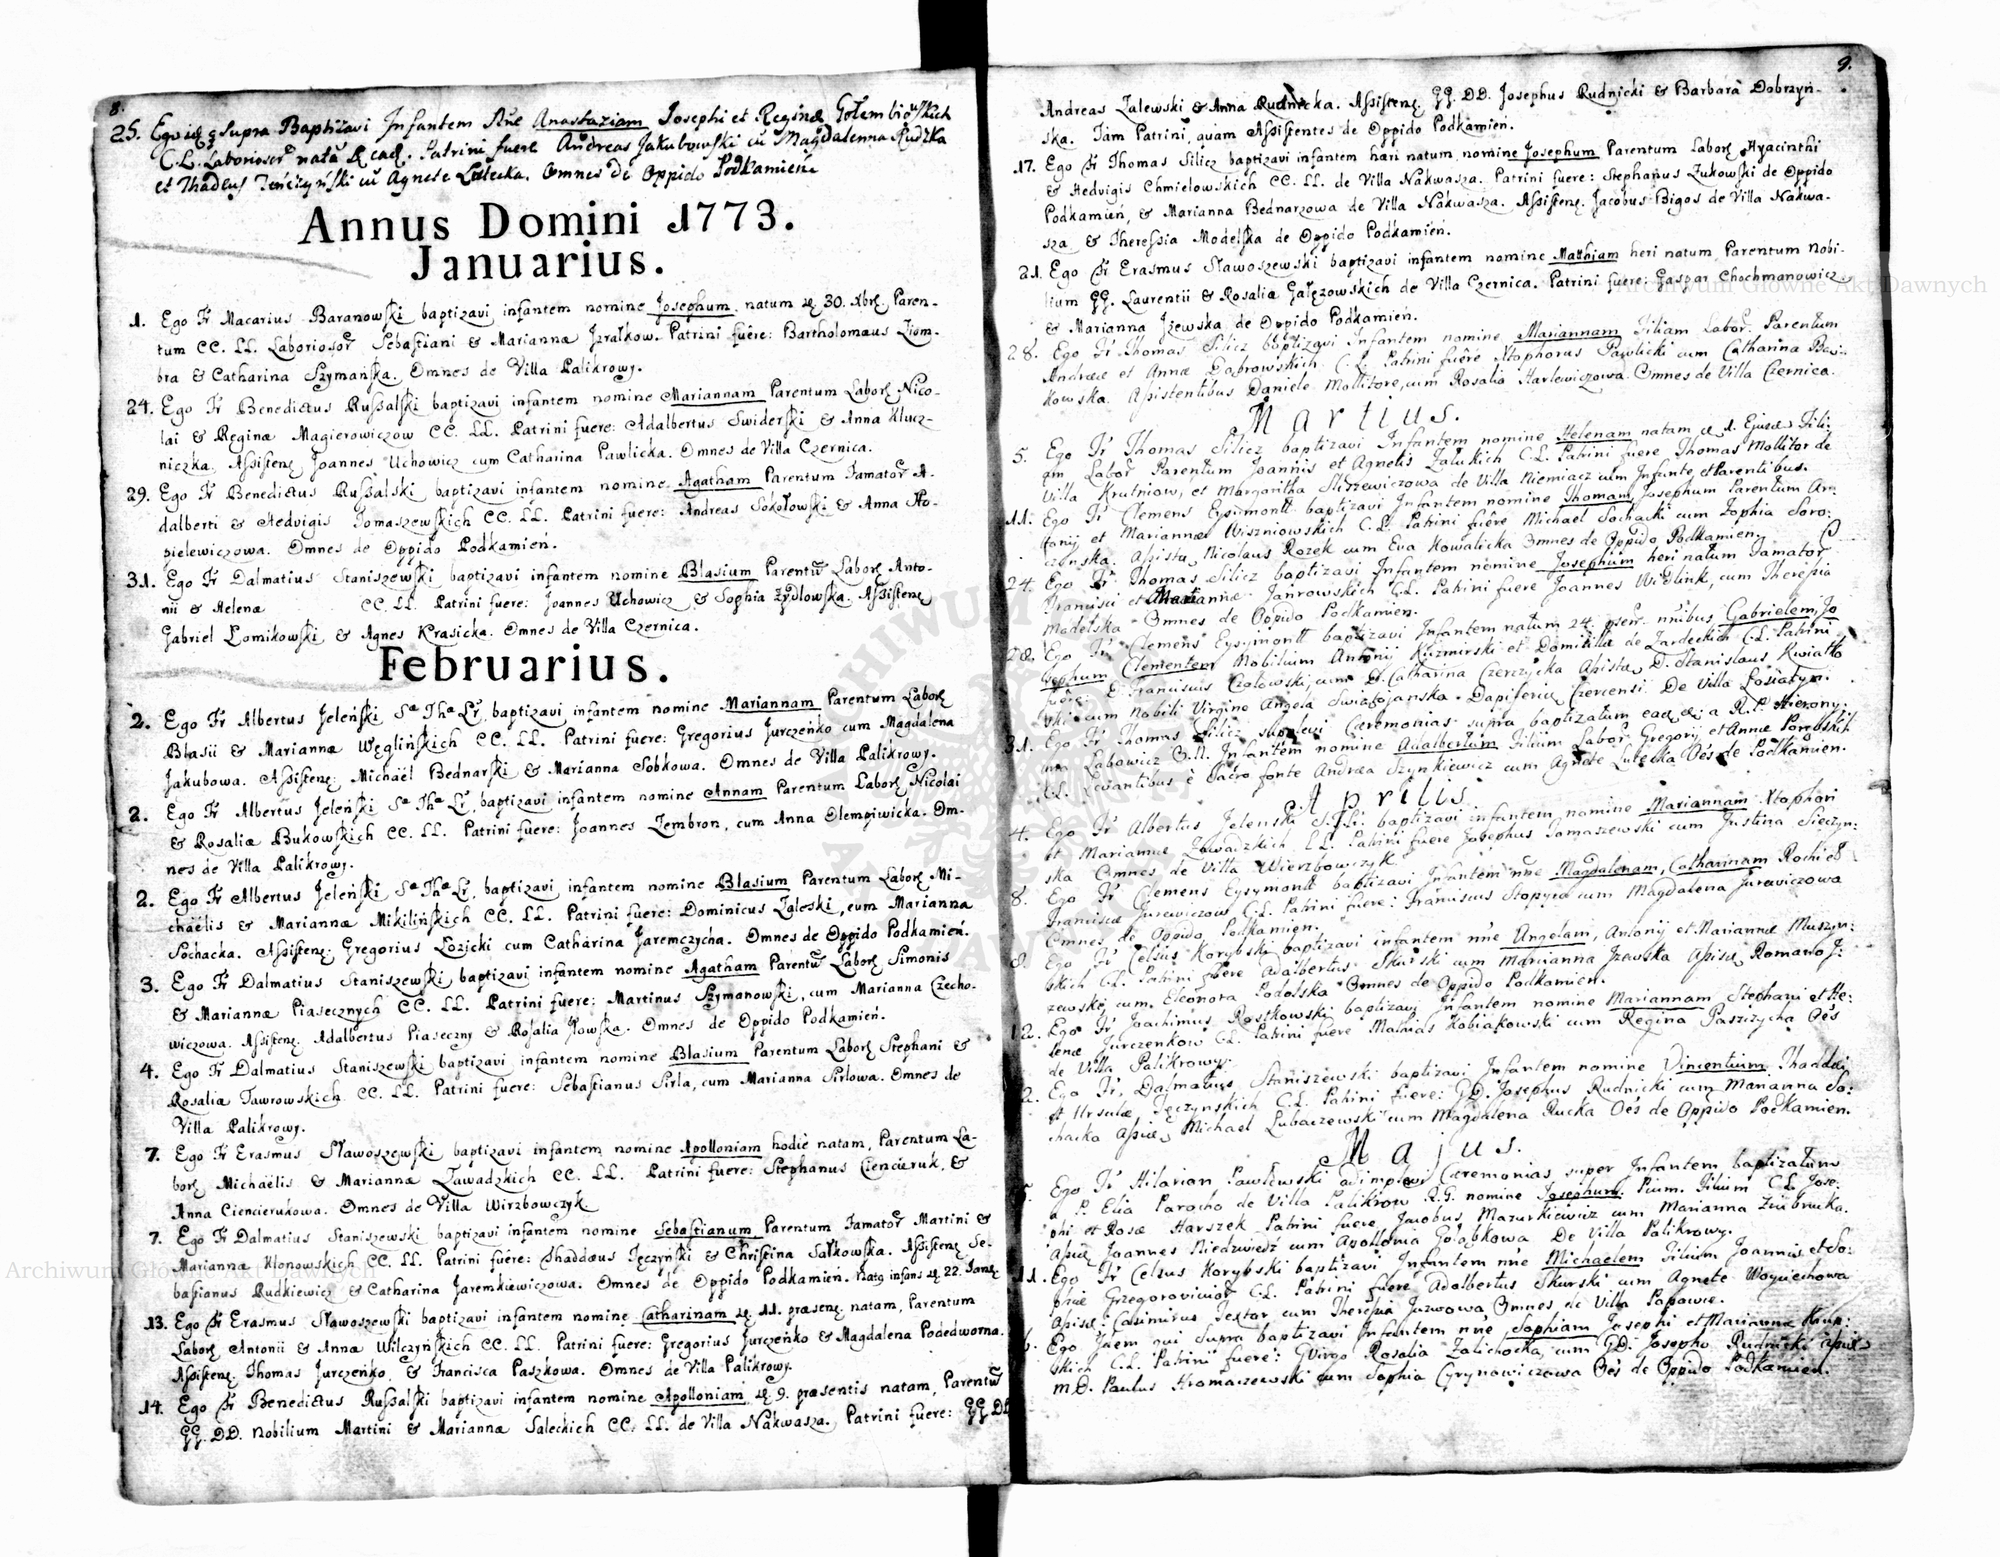 8.
25. Ego idē q̄ Supra Baptizavi Infantem Nn̄e Anastaziam Josephi et Reginæ Gołembiowskich
C. L. Laboriosor̄ natā Ead. Patrini fuere Andreas Jakubowski cū Magdalenna Rudzka
et Thadeus Tenczyński cū Agnete Lutecka. Omnes de Oppido Podkamień
Annus Domini 1773.
Januarius.
1. Ego Fr̄ Macarius Baranowski baptizavi infantem nomine Josephum natum 30. Xbrę. Paren-
tum CC. LL. Laboriosor̄ Sebastiani & Mariannæ Jzralkow. Patrini fuêre: Bartholomæus Ziom-
bra & Catharina Szymańska. Omnes de Villa Palikrowy.
24. Ego Fr̄ Benedictus Russalski baptizavi infantem nomine Mariannam Parentum Laborę Nico-
lai & Reginæ Magierowiczow CC. LL. Patrini fuere: Adalbertus Swiderski & Anna Klucz-
niczka. Assistenę Joannes Uchowicz cum Catharina Pawlicka. Omnes de Villa Czernica.
29. Ego Fr̄ Benedictus Russalski baptizavi infantem nomine Agatham Parentum Famator̄ A-
dalberti & Hedvigis Tomaszewskich CC. LL. Patrini fuere: Andreas Sokołowski & Anna Sto-
pielewiczowa. Omnes de Oppido Podkamień.
31. Ego Fr̄ Dalmatius Staniszewski baptizavi infantem nomine Blasium Parentū Laborę Anto-
nii & Helenæ CC. LL. Patrini fuere: Joannes Uchowicz & Sophia Zydlowska. Assistenę
Gabriel Lomikowski & Agnes Krasicka. Omnes de Villa Czernica.
Februarius.
2. Ego Fr̄ Albertus Jeleński Sæ Thæ Lr̄, baptizavi infantem nomine Mariannam Parentum Laborę
Blasii & Mariannæ Węglińskich CC. LL. Patrini fuere: Gregorius Jurczeńko cum Magdalena
Jakubowa. Assistenę: Michaël Bednarski & Marianna Sobkowa. Omnes de Villa Palikrowy.
2. Ego Fr̄ Albertus Jeleński Sæ Thæ Lr̄, baptizavi infantem nomine Annam Parentum Laborę Nicolai
& Rosaliæ Bukowskich CC. LL. Patrini fuere: Joannes Zembron, cum Anna Olempiwicka. Om-
nes de Villa Palikrowy.
2. Ego Fr̄ Albertus Jeleński Sæ Thæ Lr̄, baptizavi infantem nomine Blasium Parentum Laborę Mi-
chäelis & Mariannæ Mikilińskich CC. LL. Patrini fuere: Dominicus Zgleski, cum Marianna
Sochacka. Assistenę: Gregorius Lozicki cum Catharina Jaremczycha. Omnes de Oppido Podkamień.
3. Ego Fr̄ Dalmatius Staniszewski baptizavi infantem nomine Agatham Parentū Laborę Simonis
& Mariannæ Piasecznych CC. LL. Patrini fuere: Martinus Szymanowski, cum Marianna Czecho-
wiczowa. Assistenę. Adalbertus Piaseczny & Rosalia Jlowska. Omnes de Oppido Podkamień.
4. Ego Fr̄ Dalmatius Staniszewski baptizavi infantem nomine Blasium Parentum Laborę Stephani &
Rosaliæ Tawrowskich CC. LL. Patrini fuere: Sebastianus Sirla, cum Marianna Sirlowa. Omnes de
Villa Palikrowy.
7. Ego Fr̄ Erasmus Sławoszewski baptizavi infantem nomine Apolloniam hodie natam, Parentum La-
borę Michaëlis & Mariannæ Zawadzkich CC. LL. Patrini fuere: Stephanus Ciencieruk, &
Anna Ciencierukowa. Omnes de Villa Wirzbowczyk
7. Ego Fr̄ Dalmatius Staniszewski baptizavi infantem nomine Sebastianum, Parentum Famator̄ Martini &
Mariannæ Klonowskich CC. LL. Patrini fuere: Thaddæus Jęczyński & Christina Sałkowska. Assistenę Se-
bastianus Rudkiewicz & Catharina Jaremkiewiczowa. Omnes de Oppido Podkamień. Natg infans 22. Janę
13. Ego Fr̄ Erasmus Sławoszewski baptizavi infantem nomine Catharinam 11. præsenę. natam, Parentum
Laborę Antonii & Annæ Wilczyńskich CC. LL. Patrini fuere: Gregorius Jurczeńko & Magdalena Podedworna.
Assistenę. Thomas Jurczeńko, & Francisca Paszkowa. Omnes de Villa Palikrowy.
14. Ego Fr̄ Benedictus Russalski baptizavi infantem nomine Apolloniam 9. præsentis natam, Parentū
GG. DD. Nobilium Martini & Mariannæ Saleckich CC. LL. de Villa Nakwasza. Patrini fuere: GG. DD
9.
Andreas Zalewski & Anna Rudnicka. Assistenę. GG. DD. Josephus Rudnicki & Barbara Dobrzyń-
ska. Tàm Patrini, quàm Assistentes de Oppido Podkamień.
17. Ego Fr̄ Thomas Silicz baptizavi infantem hæri natum nomine Josephum Parentum Laborę Hyacinthi
& Hedvigis Chmielowskich CC. LL. de Villa Nakwasza. Patrini fuere: Stephanus Zukowski de Oppido
Podkamień, & Marianna Bednarzowa de Villa Nakwasza. Assistenę. Jacobus Bigos de Villa Nakwa-
sza, & Theressia Modelska de Oppido Podkamień.
21. Ego Fr̄ Erasmus Sławoszewski baptizavi infantem nomine Matthiam heri natum Parentum Nobi-
lium GG. Laurentii & Rosaliæ Gałęzowskich de Villa Czernica. Patrini fuere: Gaspar Chochmanowicz
& Marianna Jzewska de Oppido Podkamień.
28. Ego Fr̄ Thomas Silicz baptizavi Infantem nomine Mariannam Filiam Labor̄. Parentum
Andreæ et Annæ Dąbrowskich C. L. Patrini fuêre Xtophorus Pawlicki cum Catharina
kowska. Assistentibus Daniele Mollitore, cum Rosalia Harlewiczowa. Omnes de Villa Czernica.
Martius.
5. Ego Fr̄ Thomas Silicz baptizavi Infantem nomine Helenam natam 1. Ejusd. Fili-
am Labor̄ Parentum Joannis et Agnetis Załukich C. L. Patrini fuere Thomas Mollitor de
Villa Krutniow, et Margaritha Slizewiczowa de Villa Niemiacz cum Infante et Parentibus.
11. Ego Fr̄ Clemens Eysimontt baptizavi Infantem nomine Thomam Josephum Parentum An-
tonij et Mariannæ Wiszniowskich C. L. Patrini fuêre Michael Sochacki cum Zophia Soro-
czynska. Assistū Nicolaus Rozek cum Eva Kowalicka Omnes de Oppido Podkamien.
24. Ego Fr̄ Thomas Silicz baptizavi Infantem nomine Josephum heri natum Famator̄
Francisci et Mariannæ Janrowskich C. L. Patrini fuere Joannes Wicilink, cum Theressia
Madelska Omnes de Oppido Podkamien.
28. Ego Fr̄ Clemens Eysymontt baptizavi Infantem natum 24. nnibus Gabrielem, Jo
sephum Clementem Nobilium Antonij Kuzmirski et Domitillæ de Jardeckich C. L. Patrini
fuêre: D. Franciscus Czołowski, cum D. Catharina Czerczycka Apistæ D. Stanislaus Kwiatko
wski cum Nobili Virgine Angela Swiatojanska. Dapiferiæ Czercensi. De Villa Łosiatyn.
31. Ego Fr̄ Thomas Silicz supplevi Cæremonias supra baptizatum ead. a R. P. Hierony-
mo Labowicz O. N. Infantem nomine Adalbertum Filium Labor̄ Gregorij et Annæ Porębskich
C. L. Levantibus è Sacro fonte Andræa Szynkiewicz cum Agnete Lutecka Oēs de Podkamien.
Aprilis
4. Ego Fr̄ Albertus Jelenski S. T. L. baptizavi infantem nomine Mariannam Xtophori
et Mariannæ Zawadzkich LL. Patrini fuere Josephus Tomaszewski cum Justina Sieczyn-
ska Omnes de Villa Wierzbowczyk
8. Ego Fr̄ Clemens Eysymontt baptizavi Infantem nn̄e Magdalenam, Catharinam Rochi et
Franciscæ Jurewiczow C. L. Patrini fuere: Franciscus Stopyra cum Magdalena Jurewiczowa
Omnes de Oppido Podkamien.
8. Ego Fr̄ Celsus Korybski baptizavi infantem nn̄e Angelam, Antonij et Mariannæ Muszyn-
skich C. L. Patrini fuere Adalbertus Skurski cum Marianna Jzewska Romano J-
zewskej cum Eleonora Podolska Omnes de Oppido Podkamien.
12. Ego Fr̄ Joachimus Rostkowski baptizavi Infantem nomine Mariannam Stephani et He-
lenæ Jurczenkow C. L. Patrini fuere Mathias Kobiakowski cum Regina Paszczycha Oēs
de Villa Palikrowy.
2. Ego Fr̄. Dalmatius Staniszewski baptizavi Infantem nomine Vincentium Thaddæi
et Ursulæ Tęczynskich C. L. Patrini fuere: GD. Josephus Rudnicki cum Marianna So-
chacka Michael Lubaczewski cum Magdalena Rucka Oēs de Oppido Podkamien.
Majus.
Ego Fr̄ Hilarian Pawlewski adimplevi Cæremonias super Infantem baptizatum
a P. Elia Parocho de Villa Palikrow R. G. nomine Josephum, Pium. Filium C. L. Jose-
phi et Rosæ Harszek Patrini fuere, Jacobus Mazurkiewicz cum Marianna
Joannes Niedzwiedź cum Apollonia Gołąbkowa De Villa Palikrowy.
11. Ego Fr̄ Celsus Korybski baptizavi Infantem nn̄e Michaelem Filium Joannis et So-
phiæ Grzegorowiczow C. L. Patrini fuere Adalbertus Skurski cum Agnete Woyciechowa
Casimirus Textor cum Theresia Juzwowa Omnes de Villa Popowce.
Ego Idem qui Supra baptizavi Infantem nn̄e Sophiam Josephi et Mariannæ Krup-
skich C. L. Patrini fuere: GVirgo Rosalia Zalichocka, cum GD. Josepho Rudnicki
M. D. Paulus Hromaczewski cum Sophia Cyrynowiczowa Oēs de Oppido Podkamien.
Archiwum Główne Akt Dawnych
Archiwum Główne Akt Dawnych